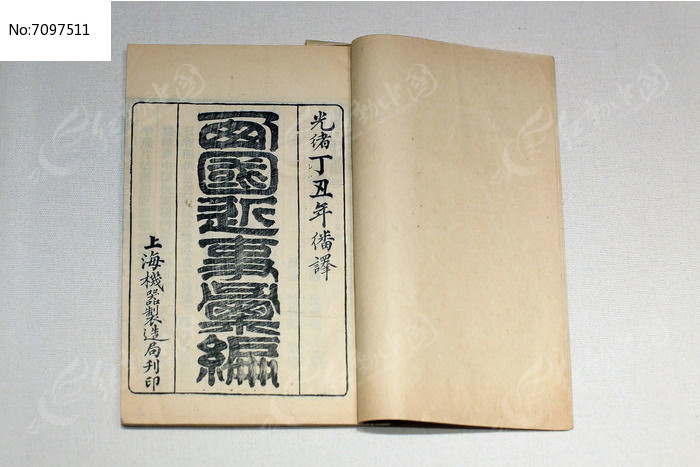 No:7097511
光緒丁丑年繙譯
西國近事彙編
上海機器製造局刊印